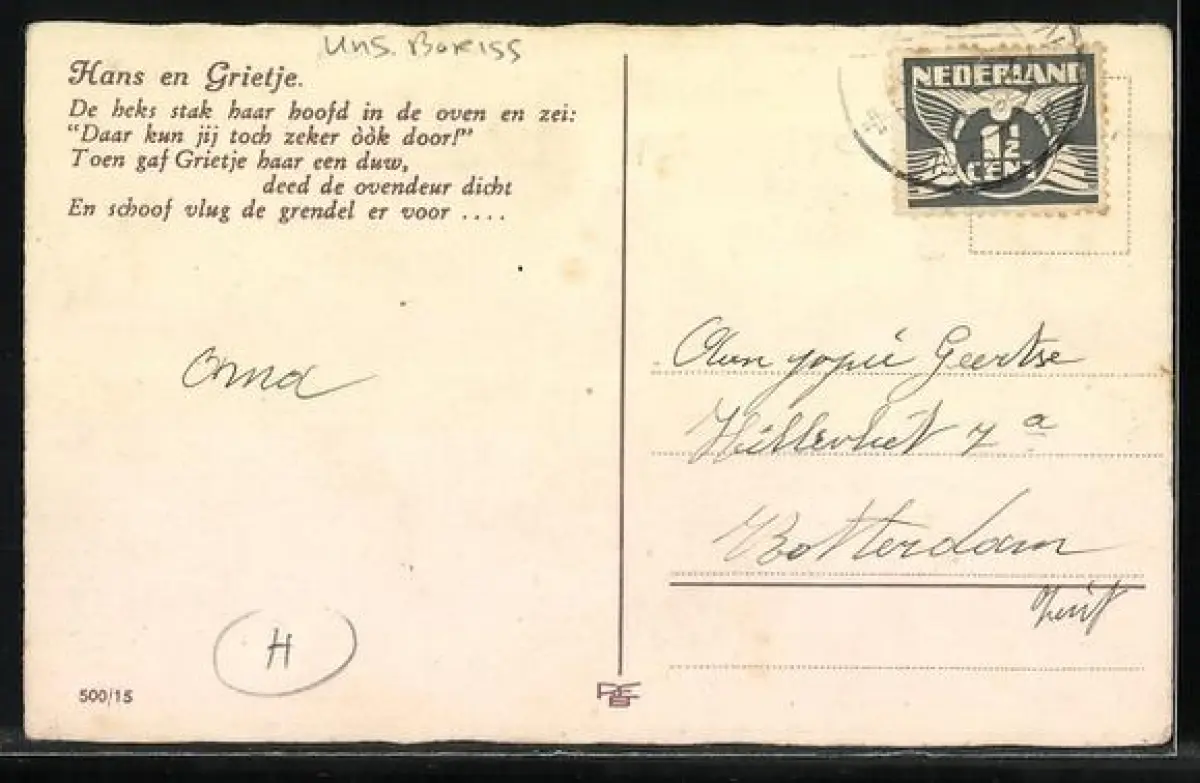 uns. Boriss
Hans en Grietje.
De heks stak haar hoofd in de oven en zei:
"Daar kun jij toch zeker òòk door!"
Toen gaf Grietje haar een duw,
deed de ovendeur dicht
En schoof vlug de grendel er voor ....
NEDERLAND
1½
CENT
Oma
Aan Jopie Geertse
Hillevliet 7 a
Rotterdam
Zuit
H
500/15